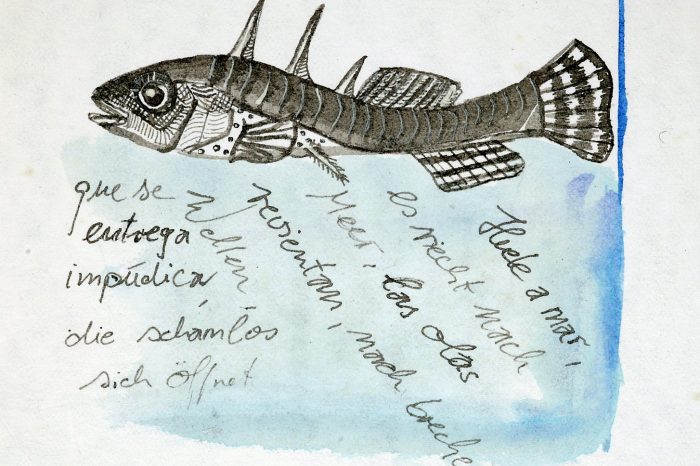 Huele a mar,
es riecht nach
Meer, las olas
revientan, nach breche
Wellen,
que se
entrega
impúdica,
die schamlos
sich öffnet